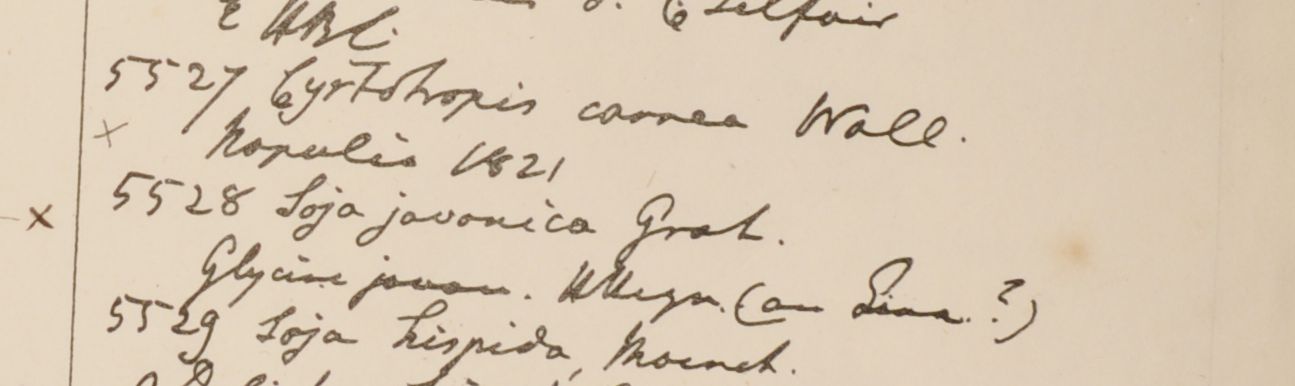 E HBC. J. C. Telfair
5527 Cyrtotropis carnea Wall.
Napalia 1821
5528 Soja javanica Grah.
Glycine javan. HHeyn. (an Linn.?)
5529 Soja hispida, Moench.